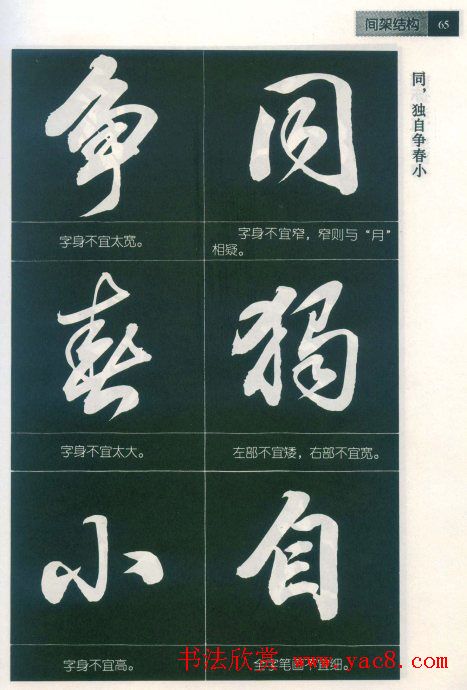 间架结构 65
同，独自争春小
同
字身不宜窄，窄则与“月”
相疑。
獨
左部不宜矮，右部不宜宽。
自
全字笔画不宜细。
争
字身不宜太宽。
春
字身不宜太大。
小
字身不宜高。
书法欣赏 www.yac8.com